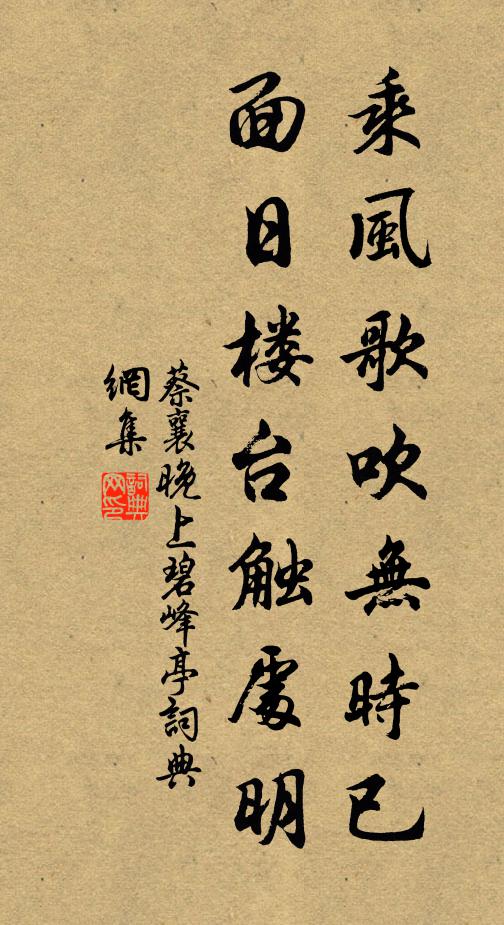 乘風歌吹無時已
面日楼台触處明
蔡襄晚上碧峰亭詞典
網集
詞典
网印